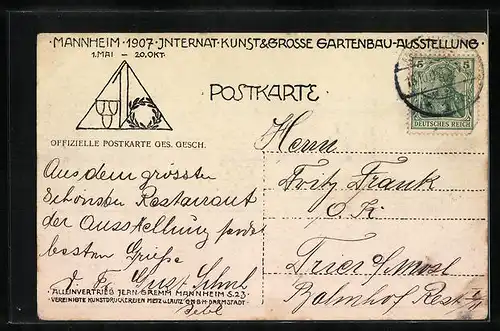 MANNHEIM · 1907 · INTERNAT · KUNST & GROSSE GARTENBAU-AUSSTELLUNG ·
1. MAI – 20. OKT.
POSTKARTE
5 5
DEUTSCHES REICH
OFFIZIELLE POSTKARTE GES. GESCH.
Herrn
Fritz Frank
Trier a/Mosel
Bahnhof Rest.
Aus dem grössten
schönsten Restaurant
der Ausstellung
besten Grüße
ALLEINVERTRIEB JEAN GREMM MANNHEIM S.2.3 ·
VEREINIGTE KUNSTDRUCKEREIEN METZ u. LAUTZ G M B H · DARMSTADT ·